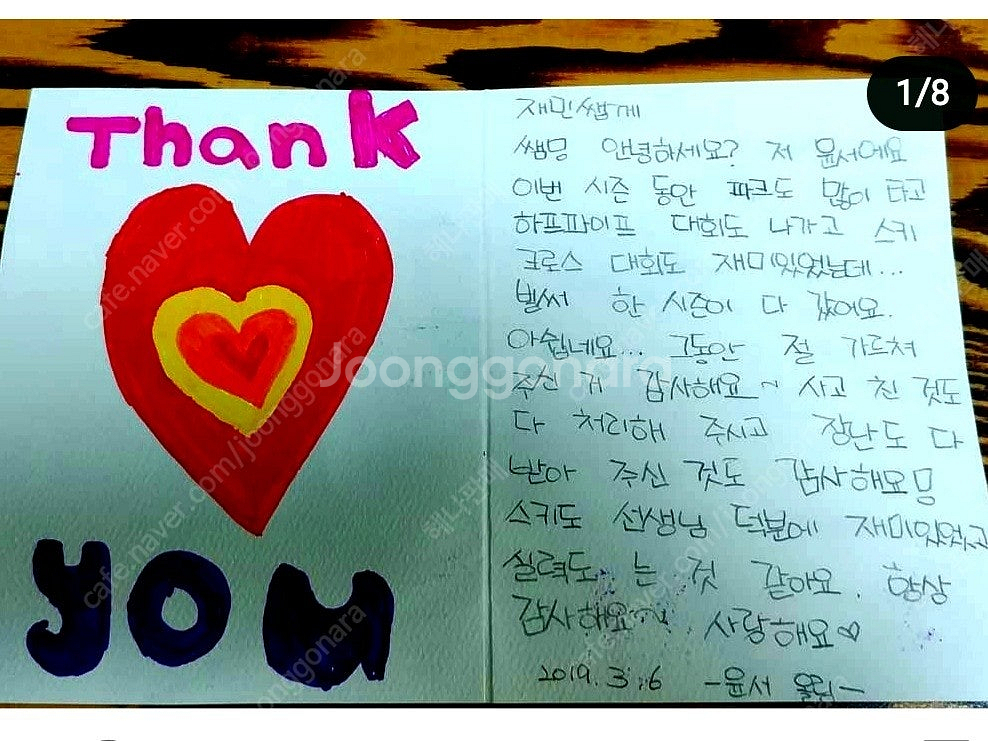 Thank
you
재민쌤께
쌤밍 안녕하세요? 저 윤서에요
이번 시즌 동안 파크도 많이 타고
하프파이프 대회도 나가고 스키
크로스 대회도 재미있었는데...
벌써 한 시즌이 다 갔어요.
아쉽네요... 그동안 절 가르쳐
주신 게 감사해요~ 사고 친 것도
다 처리해 주시고 장난도 다
받아 주신 것도 감사해요밍
스키도 선생님 덕분에 재미있었고
실력도 는 것 같아요. 항상
감사해요~ 사랑해요♡
2019. 3. 6 -윤서 올림-
1/8
Joonggonara
cafe.naver.com/joonggonara